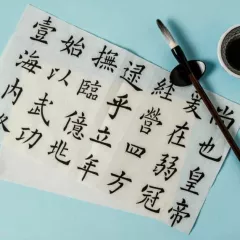 也皇帝
爰在弱冠
經營四方
逮乎立年
撫臨億兆
始以武功
壹海内